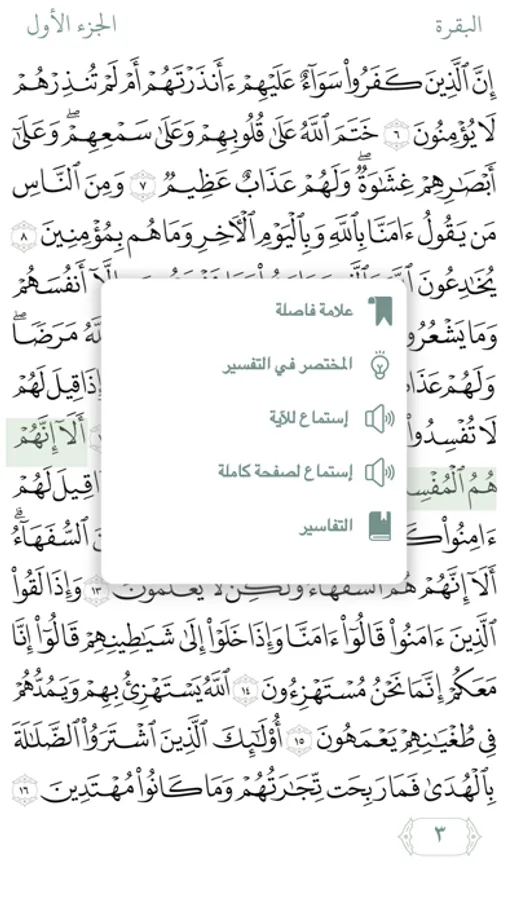 البقرة
الجزء الأول
إِنَّ ٱلَّذِينَ كَفَرُوا۟ سَوَآءٌ عَلَيْهِمْ ءَأَنذَرْتَهُمْ أَمْ لَمْ تُنذِرْهُمْ
لَا يُؤْمِنُونَ ٦ خَتَمَ ٱللَّهُ عَلَىٰ قُلُوبِهِمْ وَعَلَىٰ سَمْعِهِمْ ۖ وَعَلَىٰٓ
أَبْصَـٰرِهِمْ غِشَـٰوَةٌ ۖ وَلَهُمْ عَذَابٌ عَظِيمٌ ٧ وَمِنَ ٱلنَّاسِ
مَن يَقُولُ ءَامَنَّا بِٱللَّهِ وَبِٱلْيَوْمِ ٱلْـَٔاخِرِ وَمَا هُم بِمُؤْمِنِينَ ٨
يُخَـٰدِعُونَ أَنفُسَهُمْ
وَمَا يَشْعُرُو مَرَضًا ۖ
وَلَهُمْ عَذَا إِذَا قِيلَ لَهُمْ
لَا تُفْسِدُوا۟ أَلَآ إِنَّهُمْ
هُمُ ٱلْمُفْسِ قِيلَ لَهُمْ
ءَامِنُوا۟ ٱلسُّفَهَآءُ ۗ
أَلَآ إِنَّهُمْ هُمُ ٱلسُّفَهَآءُ وَلَـٰكِن لَّا يَعْلَمُونَ ١٣ وَإِذَا لَقُوا۟
ٱلَّذِينَ ءَامَنُوا۟ قَالُوٓا۟ ءَامَنَّا وَإِذَا خَلَوْا۟ إِلَىٰ شَيَـٰطِينِهِمْ قَالُوٓا۟ إِنَّا
مَعَكُمْ إِنَّمَا نَحْنُ مُسْتَهْزِءُونَ ١٤ ٱللَّهُ يَسْتَهْزِئُ بِهِمْ وَيَمُدُّهُمْ
فِى طُغْيَـٰنِهِمْ يَعْمَهُونَ ١٥ أُو۟لَـٰٓئِكَ ٱلَّذِينَ ٱشْتَرَوُا۟ ٱلضَّلَـٰلَةَ
بِٱلْهُدَىٰ فَمَا رَبِحَت تِّجَـٰرَتُهُمْ وَمَا كَانُوا۟ مُهْتَدِينَ ١٦
٣
علامة فاصلة
المختصر في التفسير
إستماع للآية
إستماع لصفحة كاملة
التفاسير